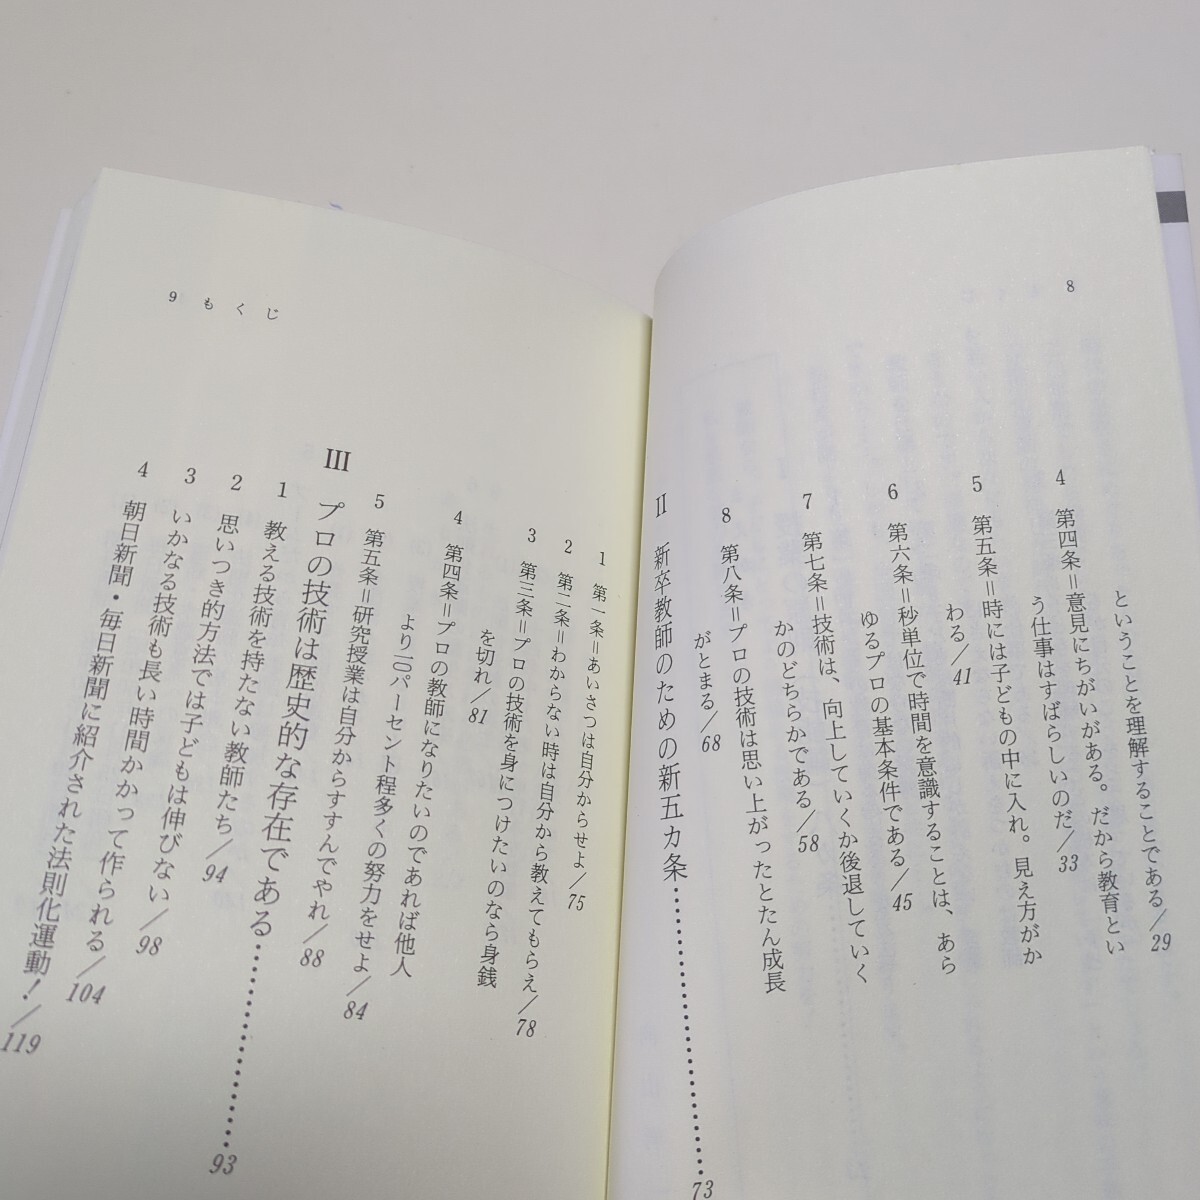 8
ということを理解することである／29
4 第四条＝意見にちがいがある。だから教育とい
う仕事はすばらしいのだ／33
5 第五条＝時には子どもの中に入れ。見え方がか
わる／41
6 第六条＝秒単位で時間を意識することは、あら
ゆるプロの基本条件である／45
7 第七条＝技術は、向上していくか後退していく
かのどちらかである／58
8 第八条＝プロの技術は思い上がったとたん成長
がとまる／68
II 新卒教師のための新五カ条……………………73
9 もくじ
1 第一条＝あいさつは自分からせよ／75
2 第二条＝わからない時は自分から教えてもらえ／78
3 第三条＝プロの技術を身につけたいのなら身銭
を切れ／81
4 第四条＝プロの教師になりたいのであれば他人
より二〇パーセント程多くの努力をせよ／84
5 第五条＝研究授業は自分からすすんでやれ／88
III プロの技術は歴史的な存在である……………………93
1 教える技術を持たない教師たち／94
2 思いつき的方法では子どもは伸びない／98
3 いかなる技術も長い時間かかって作られる／104
4 朝日新聞・毎日新聞に紹介された法則化運動！／119